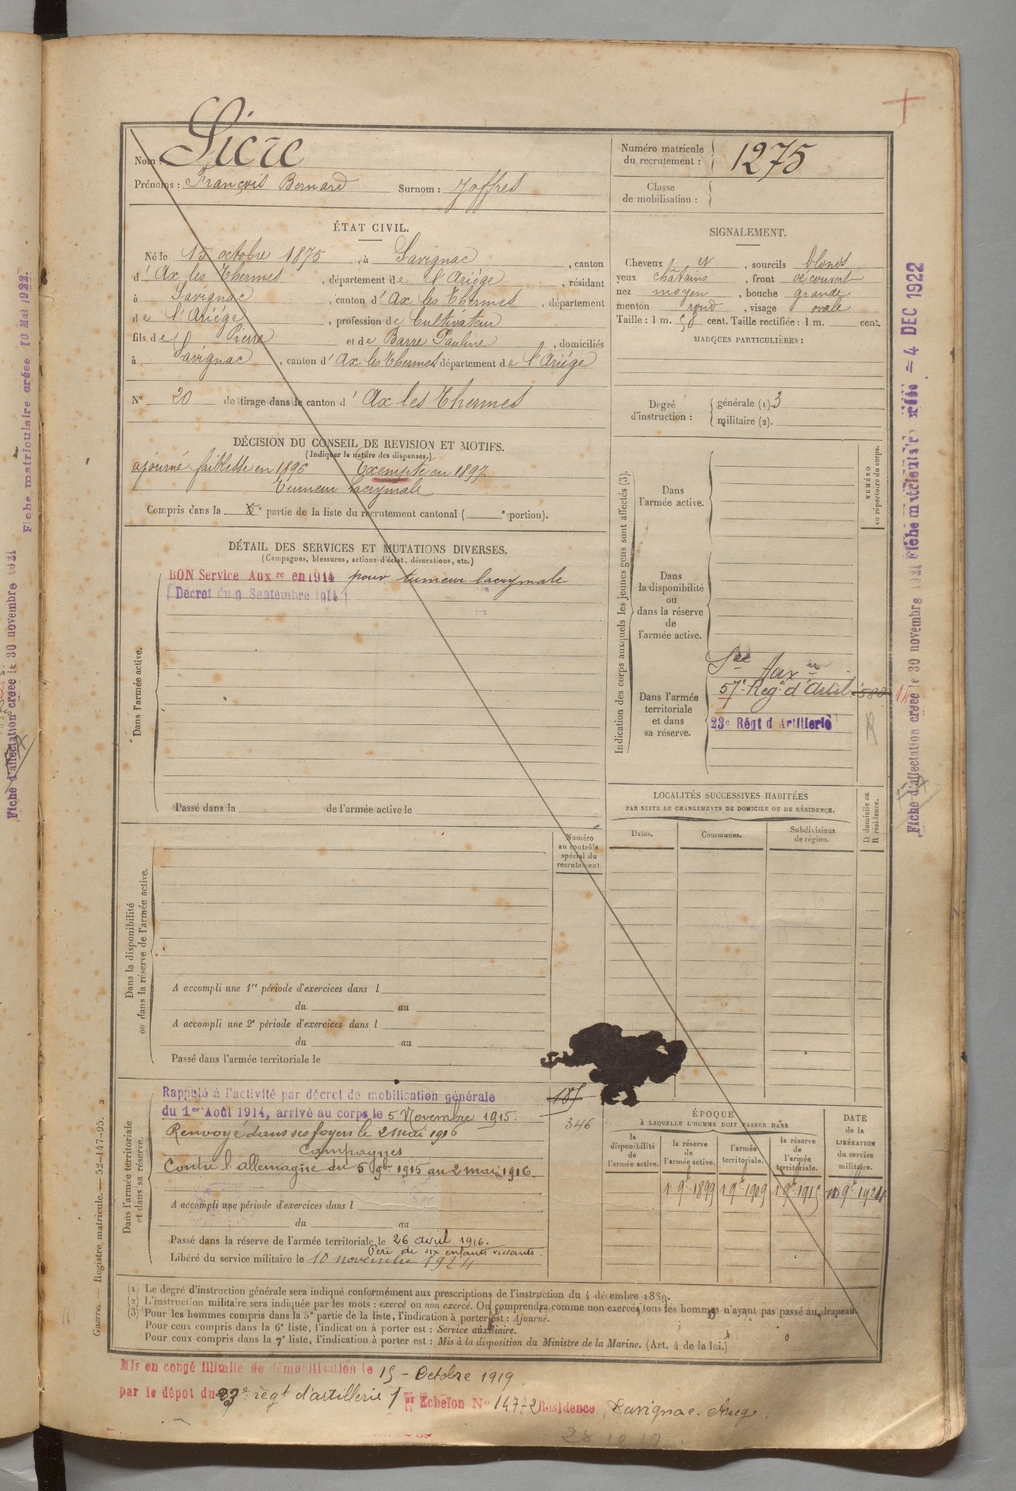 Nom : Sicre
Prénoms : François Bernard Surnom : Joffres
Numéro matricule du recrutement : 1275
Classe de mobilisation :
ÉTAT CIVIL.
Né le 15 octobre 1875, à Savignac, canton
d'Ax les Thermes, département de l'Ariége, résidant
à Savignac, canton d'Ax les Thermes, département
de l'Ariége, profession de Cultivateur
fils de Pierre et de Barre Pauline, domiciliés
à Savignac, canton d'Ax les Thermes département de l'Ariége
N° 20 de tirage dans le canton d'Ax les Thermes
SIGNALEMENT.
Cheveux et, sourcils blonds
yeux chatains, front découvert
nez moyen, bouche grande
menton rond, visage ovale
Taille : 1 m. 58 cent. Taille rectifiée : 1 m. cent.
MARQUES PARTICULIÈRES :
Degré d'instruction : générale (1). 3
militaire (2).
DÉCISION DU CONSEIL DE REVISION ET MOTIFS.
(Indiquer la nature des dispenses.)
ajourné faiblesse en 1896 Exempté en 1897
Tumeur lacrymale
Compris dans la e partie de la liste du recrutement cantonal ( e portion).
DÉTAIL DES SERVICES ET MUTATIONS DIVERSES.
(Campagnes, blessures, actions d'éclat, décorations, etc.)
BON Service Aux re en 1914 pour tumeur lacrymale
Decret du 9 Septembre 1914
Dans l'armée active.
Passé dans la de l'armée active le
Indication des corps auxquels les jeunes gens sont affectés (3).
Dans l'armée active.
Dans la disponibilité ou dans la réserve de l'armée active.
Dans l'armée territoriale et dans sa réserve.
Sce Aux re
57e Reg. d'Artil
23e Régt d'Artillerie
NUMÉRO au répertoire du corps.
LOCALITÉS SUCCESSIVES HABITÉES
PAR SUITE DE CHANGEMENTS DE DOMICILE OU DE RÉSIDENCE.
Dates. Communes. Subdivisions de région.
D domicile ou R résidence.
Numéro au contrôle spécial du recrutement.
Dans la disponibilité ou dans la réserve de l'armée active.
A accompli une 1re période d'exercices dans l
du au
A accompli une 2e période d'exercices dans l
du au
Passé dans l'armée territoriale le
Dans l'armée territoriale et dans sa réserve.
Rappelé à l'activité par décret de mobilisation générale
du 1er Août 1914, arrivé au corps le 5 Novembre 1915.
346
Renvoyé dans ses foyers le 2 mai 1916
Campagnes
Contre l'allemagne du 5 9bre 1915 au 2 mai 1916.
A accompli une période d'exercices dans l
du au
Passé dans la réserve de l'armée territoriale le 26 avril 1916.
Père de six enfants vivants.
Libéré du service militaire le 10 novembre 1924
ÉPOQUE
À LAQUELLE L'HOMME DOIT PASSER DANS
la disponibilité de l'armée active.
la réserve de l'armée active.
l'armée territoriale.
la réserve de l'armée territoriale.
DATE de la LIBÉRATION du service militaire.
(1) Le degré d'instruction générale sera indiqué conformément aux prescriptions de l'instruction du 4 décembre 1889.
(2) L'instruction militaire sera indiquée par les mots : exercé ou non exercé. On comprendra comme non exercés tous les hommes n'ayant pas passé au drapeau.
(3) Pour les hommes compris dans la 5e partie de la liste, l'indication à porter est : Ajourné.
Pour ceux compris dans la 6e liste, l'indication à porter est : Service auxiliaire.
Pour ceux compris dans la 7e liste, l'indication à porter est : Mis à la disposition du Ministre de la Marine. (Art. 4 de la loi.)
Mis en congé illimité de démobilisation le 15 - Octobre 1919.
par le dépôt du 23e regt d'artillerie 1er Echelon N° 14772 Résidence Savignac. Ariege.
Guerre. — Registre matricule. — 52-147-95.
Fiche matriculaire créée 10 Mai 1922.
Fiche d'affectation créée le 30 novembre 1921
Fiche d'affectation créée le 30 novembre 1921
4 DEC 1922